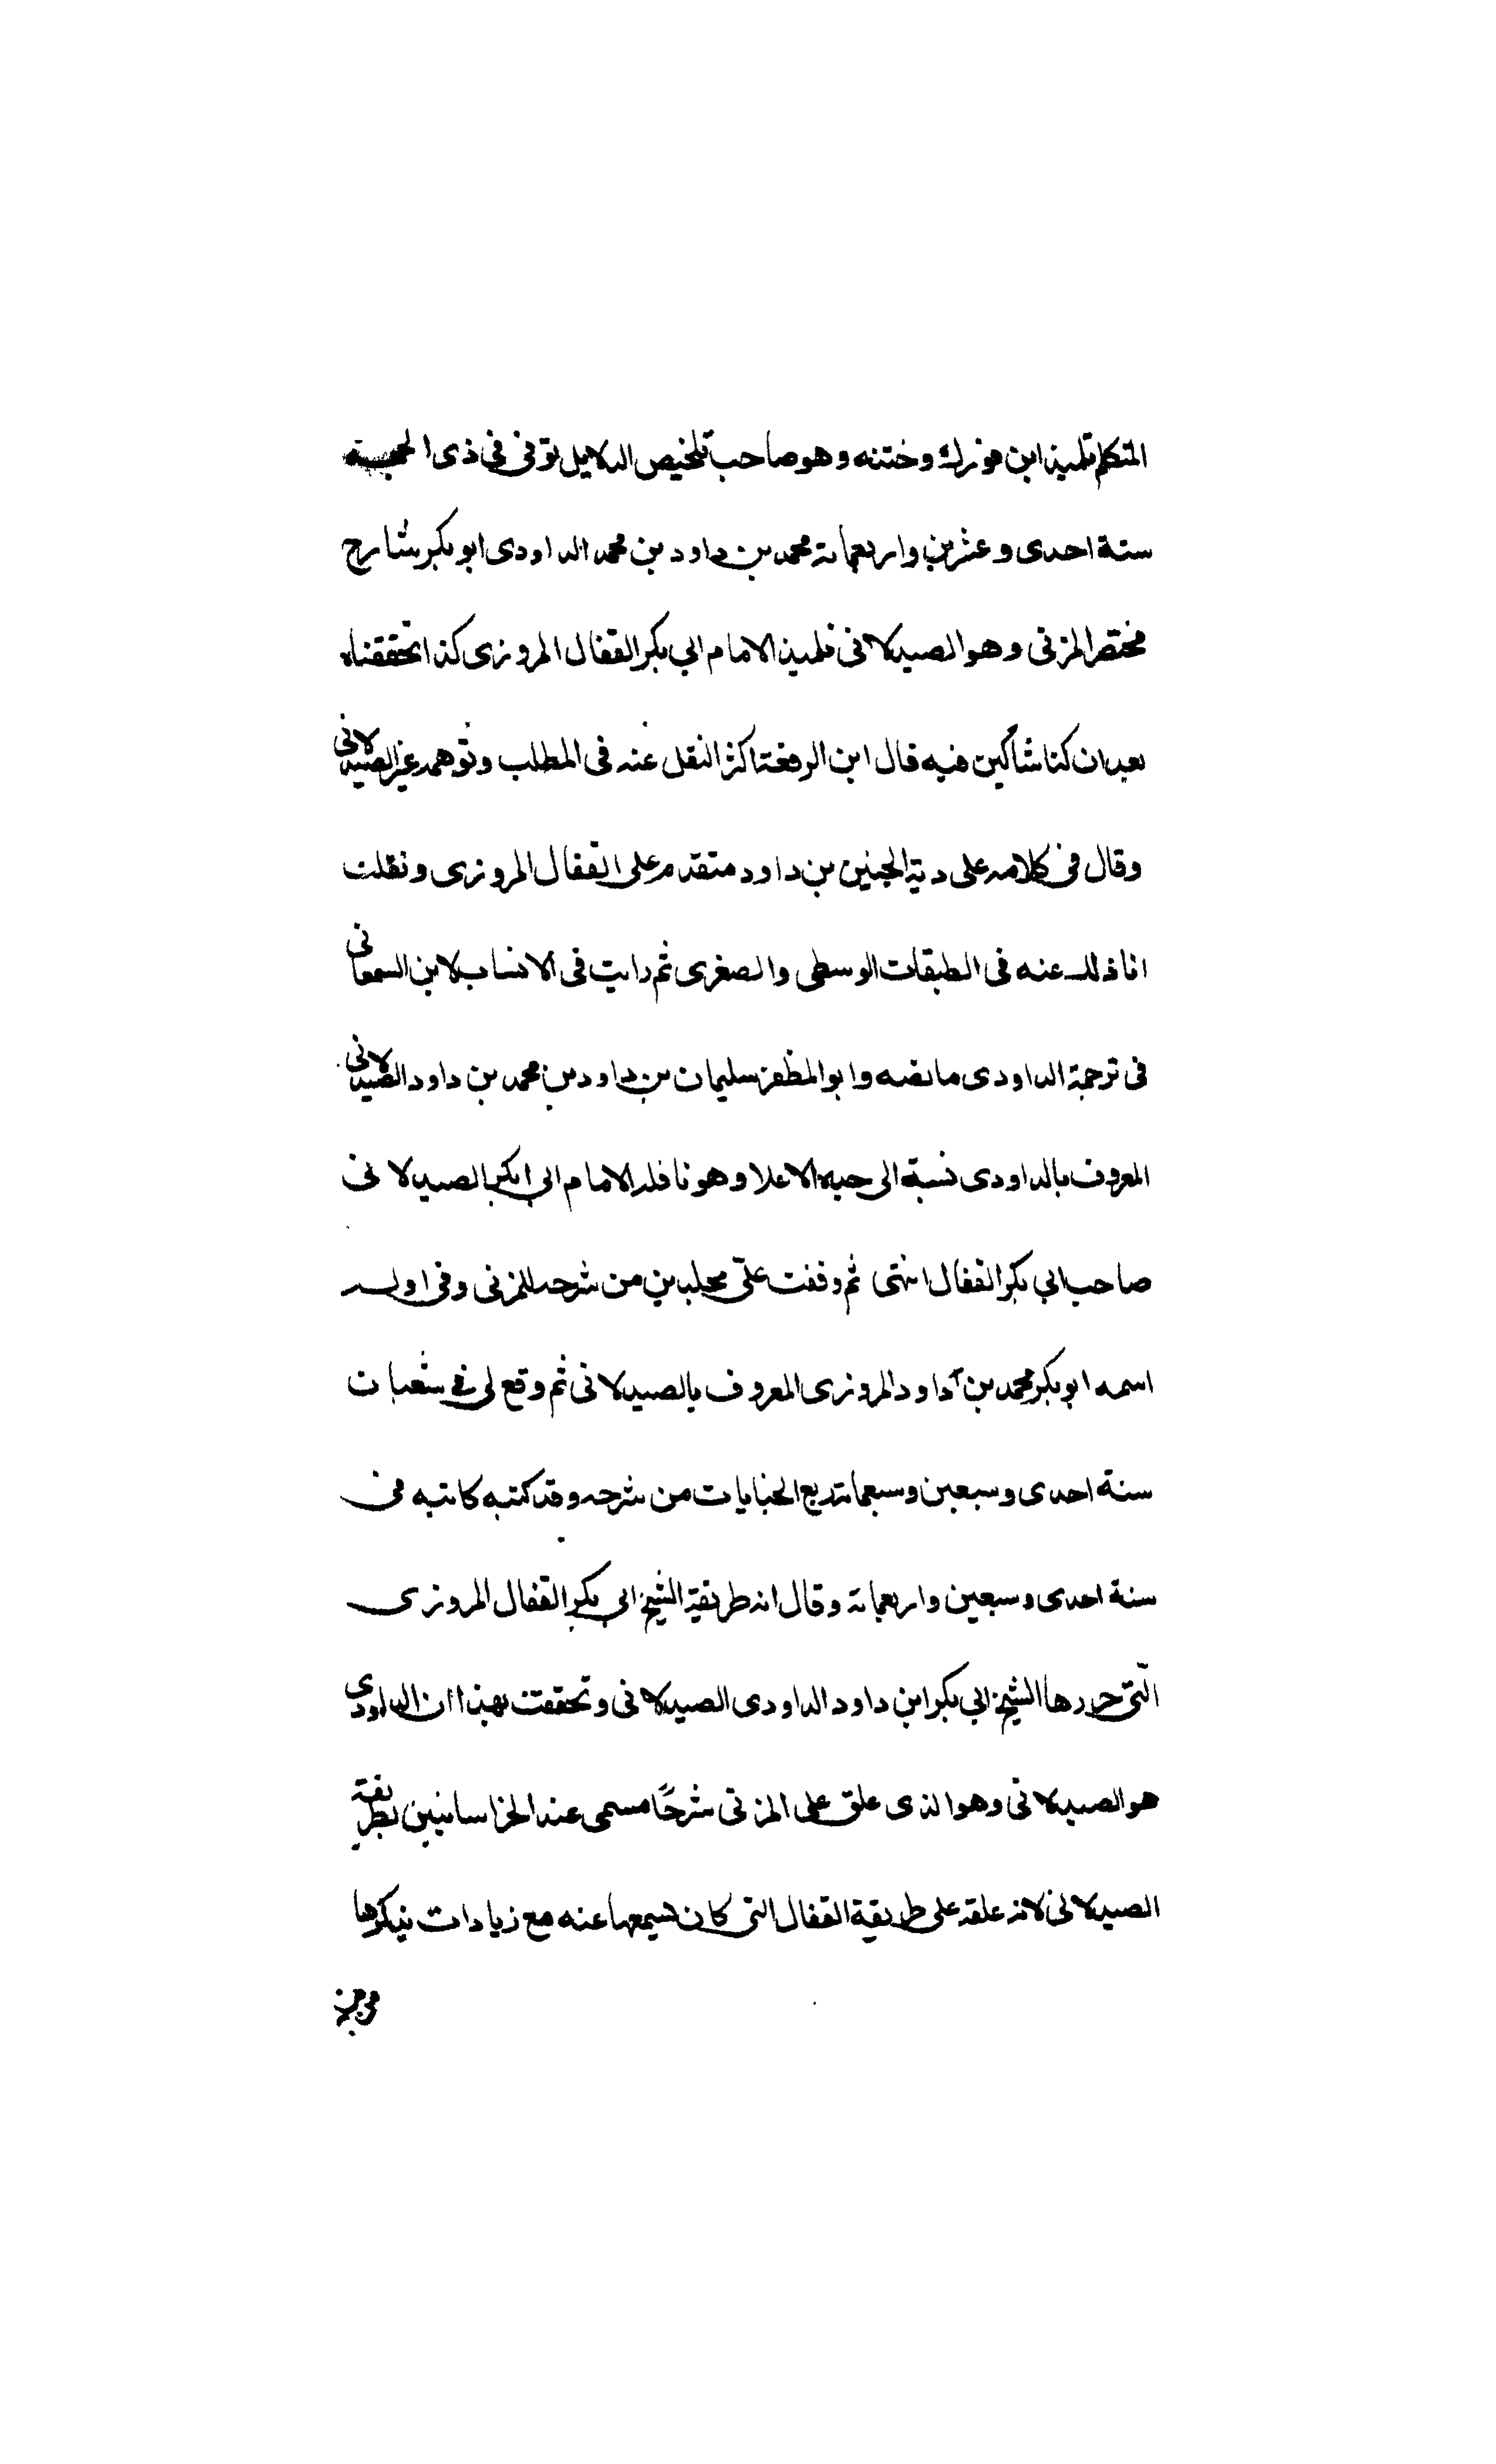 المتكلم تلميذ ابن فورك وختنه وهو صاحب تلخيص الدلايل توفى فى ذى الحجة
سنة احدى وعشرين واربعماية محمد بن داود بن محمد الداودى ابو بكر شارح
مختصر المزنى وهو الصيدلانى تلميذ الامام ابي بكر القفال المروزى كذا تحققناه
بعد ان كنا شاكين فيه قال ابن الرفعة اكثر النقل عنه فى المطلب وتوهمه غير الصيدلانى
وقال فى كلامه على دية الجنين بن داود متقدم على القفال المروزى ونقلت
انا ذلك عنه فى الطبقات الوسطى والصغرى ثم رايت فى الانساب لابن السمعانى
فى ترجمة الداودى ما نصه وابو المظفر سليمان بن داود بن محمد بن داود الصيدلانى
المعروف بالداودى نسبة الى جده الاعلا وهو نافلة الامام ابى بكر الصيدلانى
صاحب ابي بكر القفال انتهى ثم وقفت على مجلدين من شرحه للمزنى وفى اوله
اسمه ابو بكر محمد بن داود المروزى المعروف بالصيدلانى ثم وقع لى فى شعبان
سنة احدى وسبعين وسبعماية ربع الجنايات من شرحه وقد كتبه كاتبه فى
سنة احدى وسبعين واربعماية وقال انه طريقة الشيخ ابى بكر القفال المروزى
التى حررها الشيخ ابي بكر ابن داود الداودى الصيدلانى وتحققت بهذا ان الداودى
هو الصيدلانى وهو الذى علق على المزنى شرحًا مسمى عند الخراسانيين بطريقة
الصيدلانى لانه علقه على طريقة القفال التى كان يسمعها عنه مع زيادات يذكرها